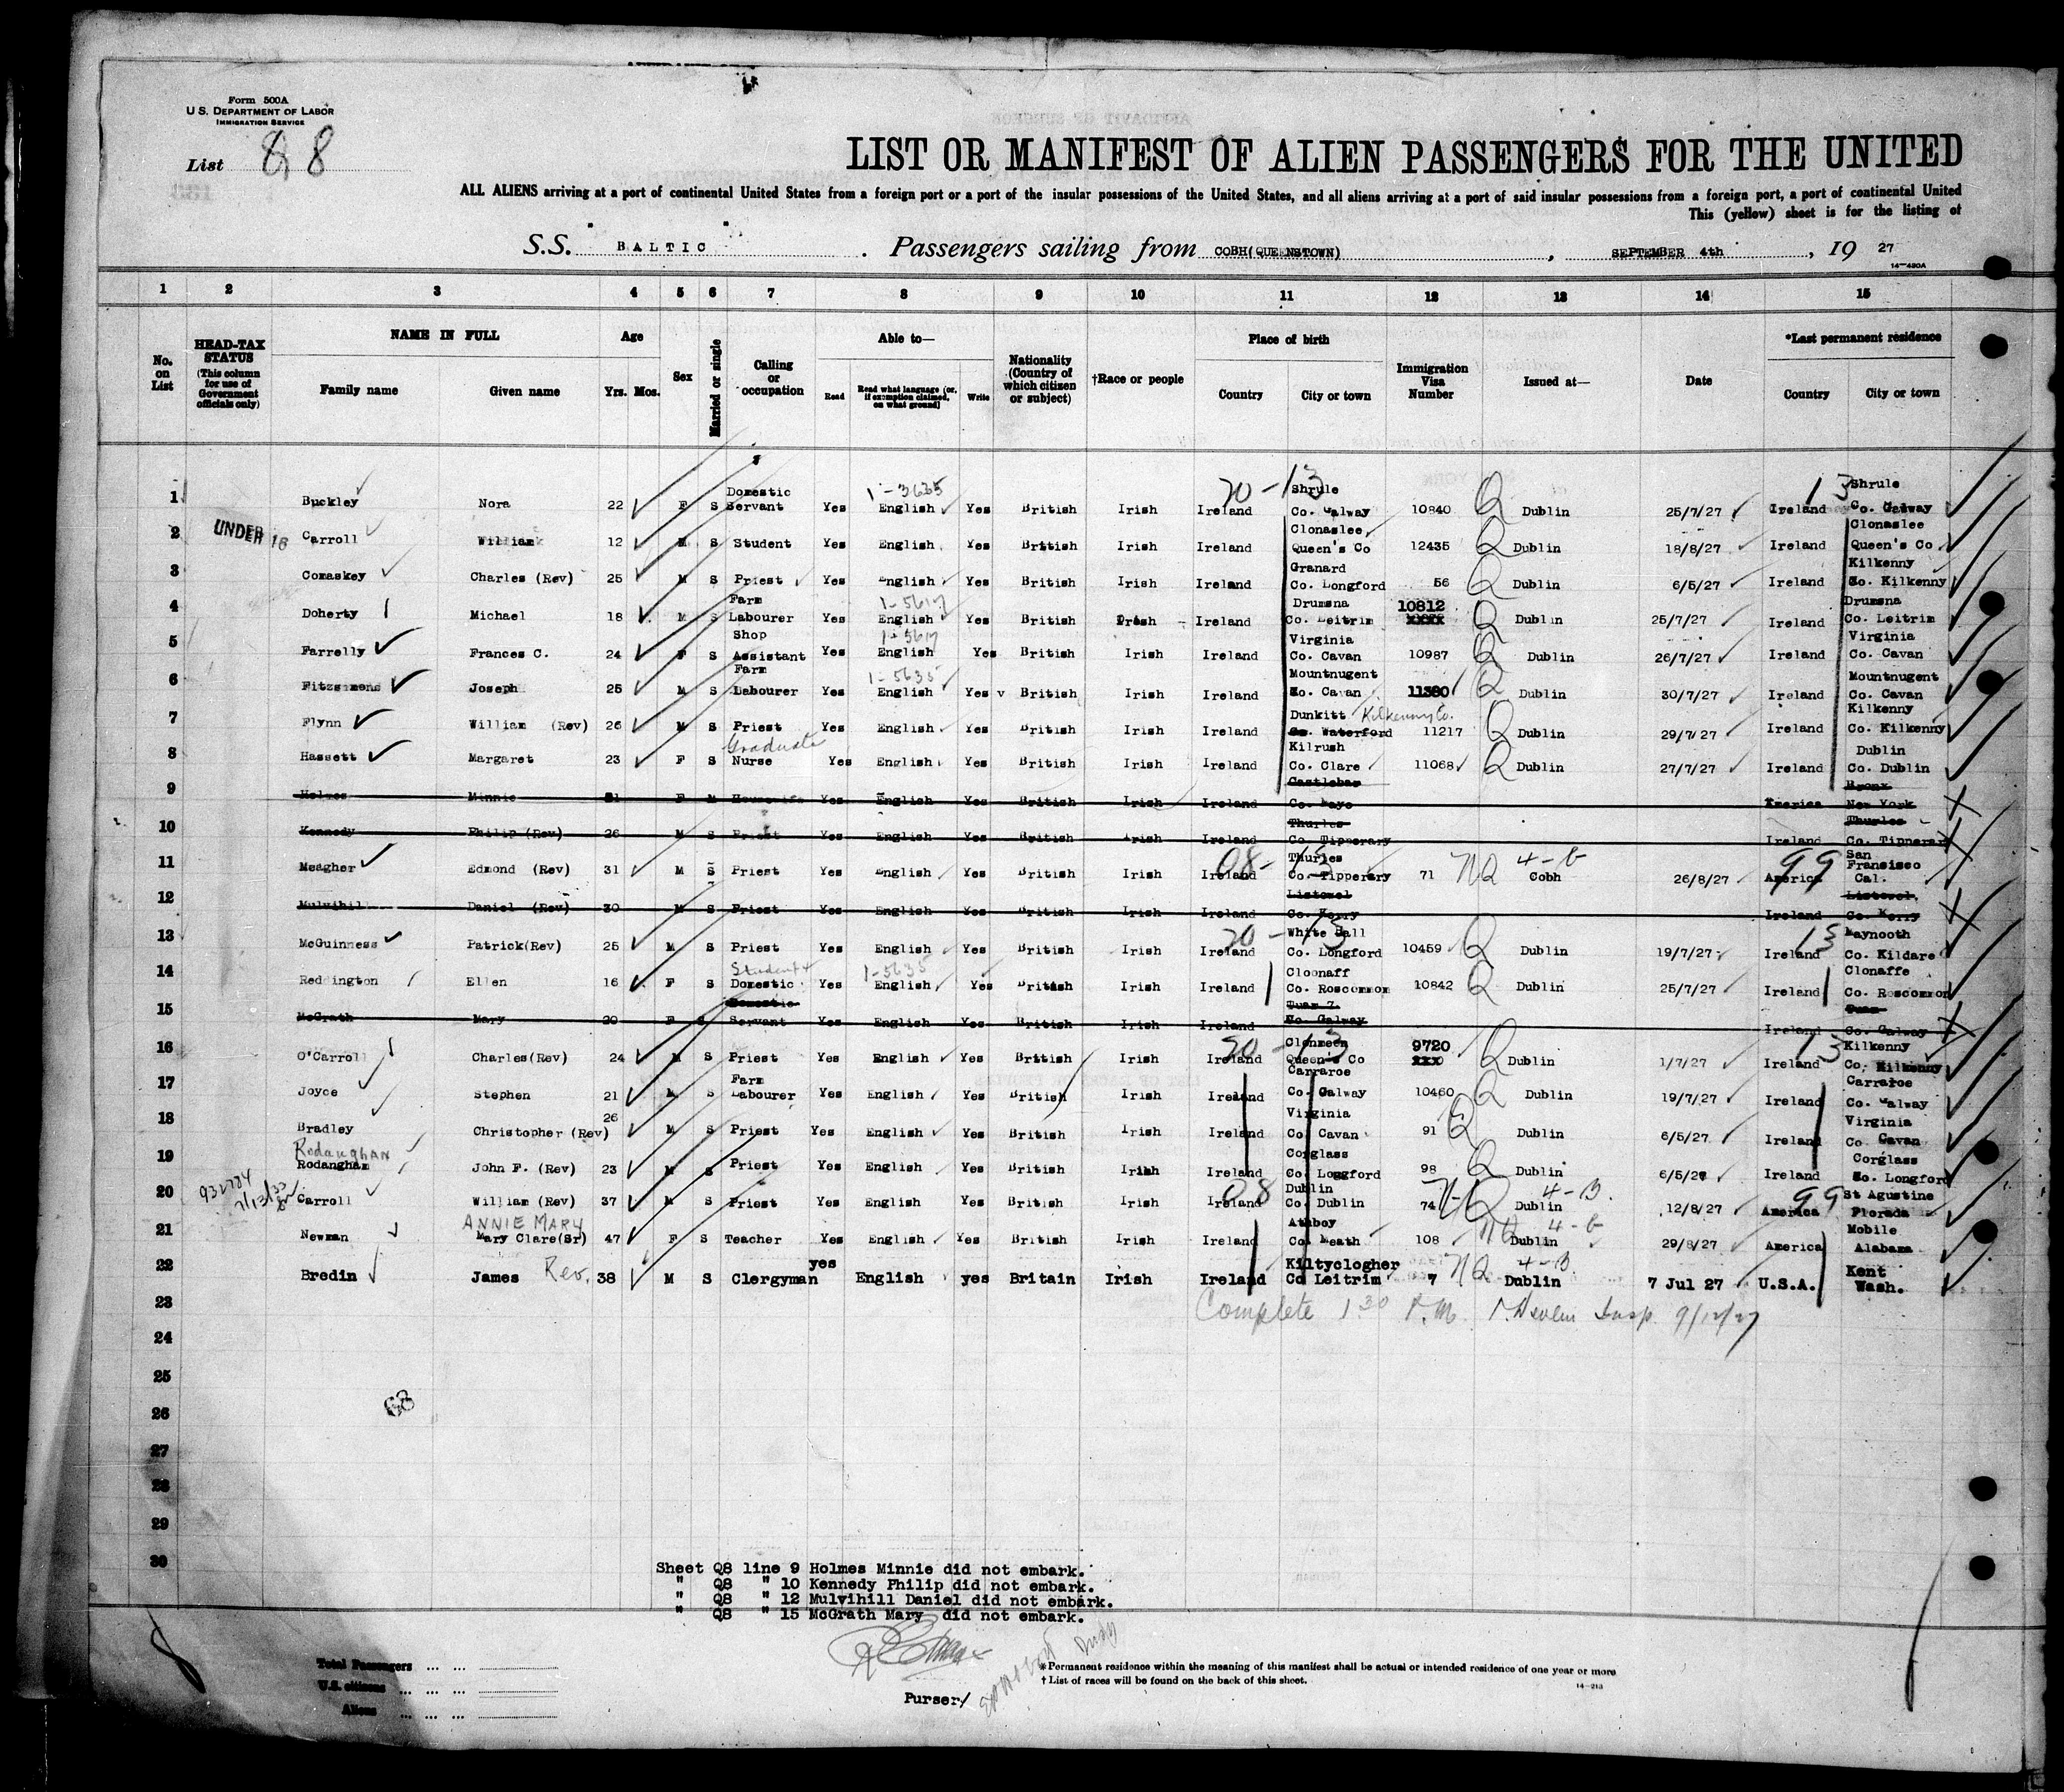 Form 500A
U. S. DEPARTMENT OF LABOR
IMMIGRATION SERVICE
List Q8
LIST OR MANIFEST OF ALIEN PASSENGERS FOR THE UNITED
ALL ALIENS arriving at a port of continental United States from a foreign port or a port of the insular possessions of the United States, and all aliens arriving at a port of said insular possessions from a foreign port, a port of continental United
This (yellow) sheet is for the listing of
S.S. "BALTIC" . Passengers sailing from COBH(QUEENSTOWN) , SEPTEMBER 4th , 19 27
14-430A
1 2 3 4 5 6 7 8 9 10 11 12 13 14 15
No. on List
HEAD-TAX STATUS (This column for use of Government officials only)
NAME IN FULL Family name Given name
Age Yrs. Mos.
Sex
Married or single
Calling or occupation
Able to— Read Read what language (or, if exemption claimed, on what ground) Write
Nationality (Country of which citizen or subject)
†Race or people
Place of birth Country City or town
Immigration Visa Number
Issued at—
Date
*Last permanent residence Country City or town
1 Buckley Nora 22 F S Domestic Servant Yes English Yes British Irish Ireland Shrule Co. Galway 10840 Q Dublin 25/7/27 Ireland Shrule Co. Galway
2 UNDER 16 Carroll William 12 M S Student Yes English Yes British Irish Ireland Clonaslee Queen's Co 12435 Q Dublin 18/8/27 Ireland Clonaslee Queen's Co
3 Comaskey Charles (Rev) 25 M S Priest Yes English Yes British Irish Ireland Granard Co. Longford 56 Q Dublin 6/5/27 Ireland Kilkenny Co. Kilkenny
4 Doherty Michael 18 M S Farm Labourer Yes 1-5617 English Yes British Irish Ireland Drumsna Co. Leitrim 10812 Q Dublin 25/7/27 Ireland Drumsna Co. Leitrim
5 Farrelly Frances C. 24 F S Shop Assistant Yes 1-5617 English Yes British Irish Ireland Virginia Co. Cavan 10987 Q Dublin 26/7/27 Ireland Virginia Co. Cavan
6 Fitzsimons Joseph 25 M S Farm Labourer Yes 1-5635 English Yes British Irish Ireland Mountnugent Co. Cavan 11380 Q Dublin 30/7/27 Ireland Mountnugent Co. Cavan
7 Flynn William (Rev) 26 M S Priest Yes English Yes British Irish Ireland Dunkitt Kilkenny Co. Co. Waterford 11217 Q Dublin 29/7/27 Ireland Kilkenny Co. Kilkenny
8 Hassett Margaret 23 F S Graduate Nurse Yes English Yes British Irish Ireland Kilrush Co. Clare 11068 Q Dublin 27/7/27 Ireland Dublin Co. Dublin
9 Holmes Minnie 31 F M Housewife Yes English Yes British Irish Ireland Castlebar Co. Mayo America Bronx New York
10 Kennedy Philip (Rev) 26 M S Priest Yes English Yes British Irish Ireland Thurles Co. Tipperary Ireland Thurles Co. Tipperary
11 Meagher Edmond (Rev) 31 M S Priest Yes English Yes British Irish Ireland Thurles Co. Tipperary 71 NQ 4-B Cobh 26/8/27 99 America San Fransisco Cal.
12 Mulvihill Daniel (Rev) 30 M S Priest Yes English Yes British Irish Ireland Listowel Co. Kerry Ireland Listowel Co. Kerry
13 McGuinness Patrick(Rev) 25 M S Priest Yes English Yes British Irish Ireland White Hall Co. Longford 10459 Q Dublin 19/7/27 Ireland Maynooth Co. Kildare
14 Reddington Ellen 16 F S Student Domestic Yes 1-5635 English Yes British Irish Ireland Cloonaff Co. Roscommon 10842 Q Dublin 25/7/27 Ireland Clonaffe Co. Roscommon
15 McGrath Mary 20 F S Domestic Servant Yes English Yes British Irish Ireland Tuam Co. Galway Ireland Tuam Co. Galway
16 O'Carroll Charles(Rev) 24 M S Priest Yes English Yes British Irish Ireland Clonmeen Queen's Co 9720 Q Dublin 1/7/27 Ireland Kilkenny Co. Kilkenny
17 Joyce Stephen 21 M S Farm Labourer Yes English Yes British Irish Ireland Carraroe Co. Galway 10460 Q Dublin 19/7/27 Ireland Carraroe Co. Galway
18 Bradley Christopher (Rev) 26 M S Priest Yes English Yes British Irish Ireland Virginia Co. Cavan 91 Q Dublin 6/5/27 Ireland Virginia Co Cavan
19 Rodaughan Rodangham John F. (Rev) 23 M S Priest Yes English Yes British Irish Ireland Corglass Co. Longford 98 Q Dublin 6/5/27 Ireland Corglass Co. Longford
20 Carroll William (Rev) 37 M S Priest Yes English Yes British Irish Ireland Dublin Co. Dublin 74 NQ 4-B. Dublin 12/8/27 99 America St Agustine Florada
21 Newman ANNIE MARY Mary Clare(Sr) 47 F S Teacher Yes English Yes British Irish Ireland Athboy Co. Meath 108 NQ 4-B Dublin 29/8/27 America Mobile Alabama
22 Bredin James Rev. 38 M S Clergyman yes English yes Britain Irish Ireland Kiltyclogher Co Leitrim 7 NQ 4-B Dublin 7 Jul 27 U.S.A. Kent Wash.
23 Complete 1 30 P.M. Insp. 9/12/27
24
25
26
27
28
29
30
Sheet Q8 line 9 Holmes Minnie did not embark.
" Q8 " 10 Kennedy Philip did not embark.
" Q8 " 12 Mulvihill Daniel did not embark.
" Q8 " 15 McGrath Mary did not embark.
Total Passengers ... ...
U.S. citizens ... ... ...
Aliens ... ... ...
Purser
*Permanent residence within the meaning of this manifest shall be actual or intended residence of one year or more
† List of races will be found on the back of this sheet.
14-213